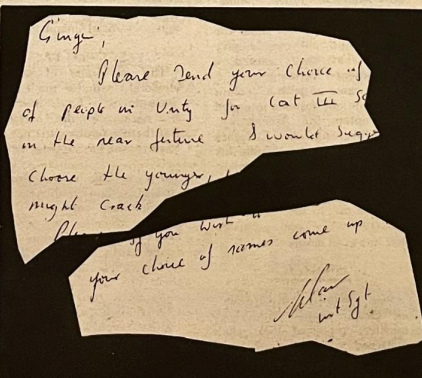 'Ginge',
Please send your choice of
of people in Unity for Cat III
in the near future I would
choose the younger,
might crack
you wish
your choice of names come up
Int Sgt.